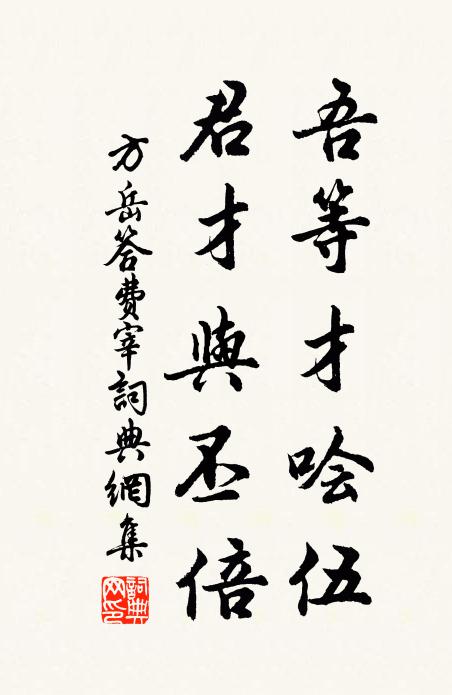 吾等才哙伍
君才與丕倍
方岳答費宰詞典網集
詞典
网印